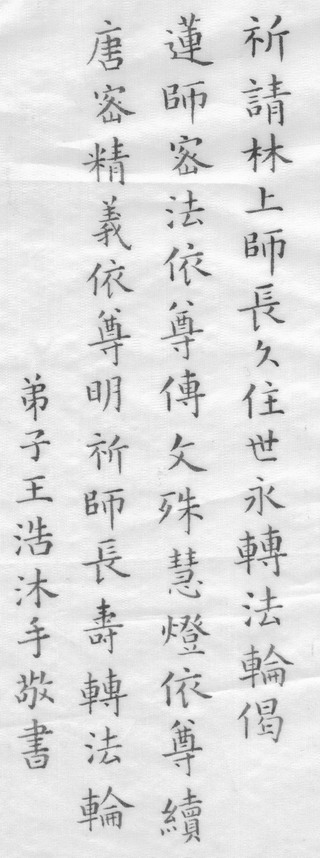 祈請林上師長久住世永轉法輪偈
蓮師密法依尊傳文殊慧燈依尊續
唐密精義依尊明祈師長壽轉法輪
弟子王浩沐手敬書